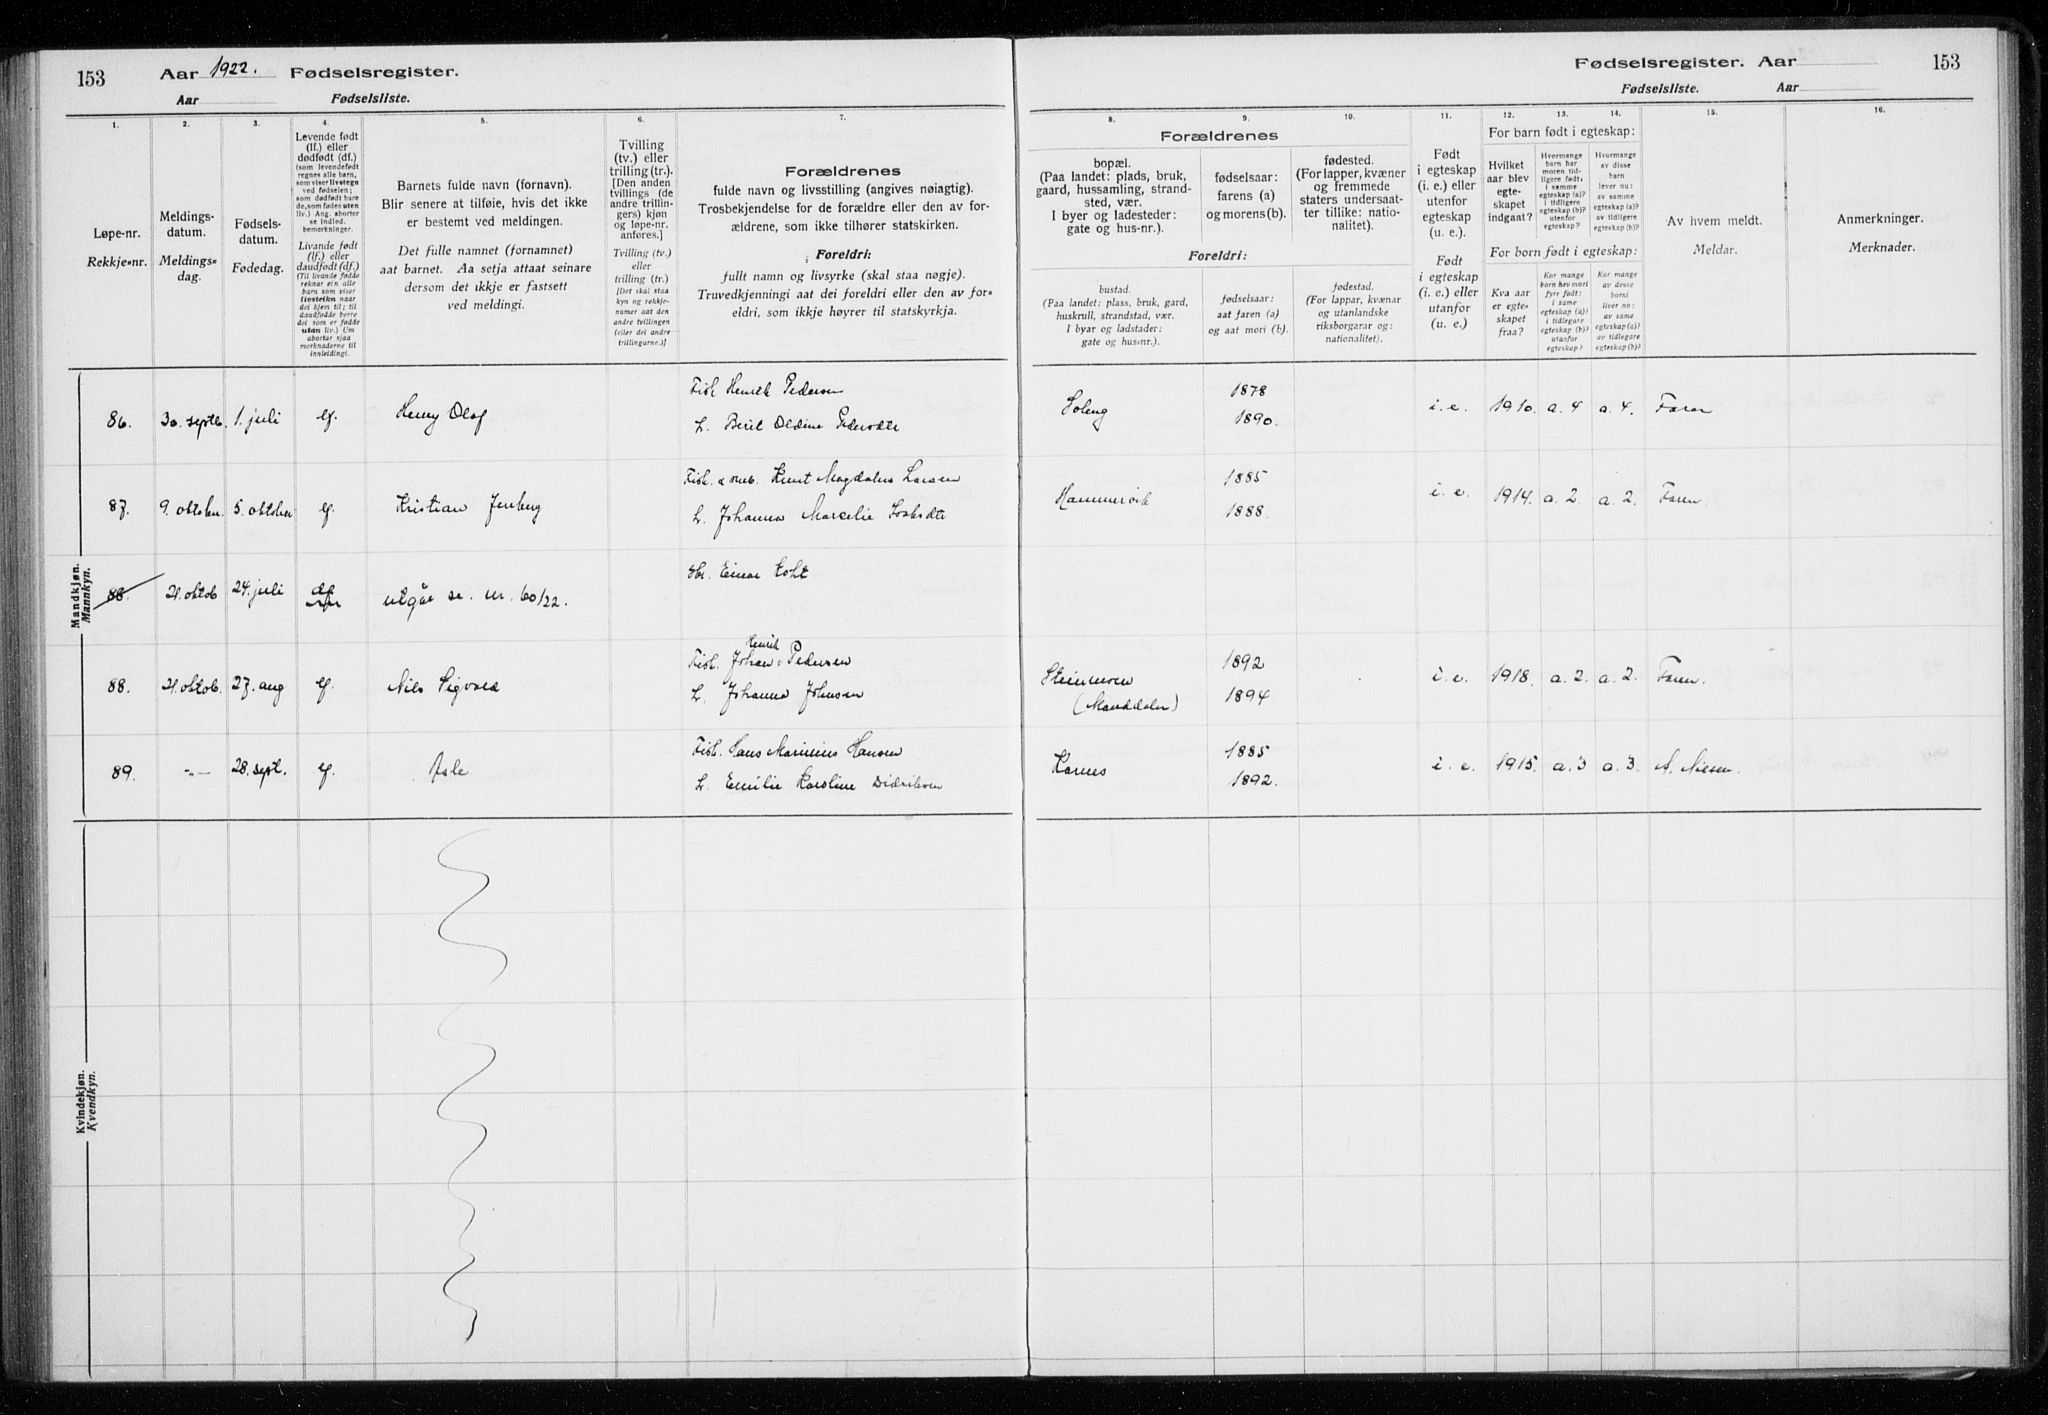 153
Aar 1922. Fødselsregister.
Aar Fødselsliste.
1.
2.
3.
4.
5.
6.
7.
Løpe-nr.
Rekkje-nr.
Meldings-
datum.
Meldings-
dag.
Fødsels-
datum.
Fødedag.
Levende født
(lf.) eller
dødfødt (df.)
(som levendefødt
regnes alle barn,
som viser livstegn
ved fødselen;
som dødfødt bare
de, som fødes uten
liv.) Ang. aborter
se indled.
bemerkninger.
Livande født
(lf.) eller
daudfødt (df.)
(Til livande fødde
reknar ein alle
barn som viser
livsteikn naar
dei kjem til; til
daudfødde berre
dei som er fødde
utan liv.) Um
abortar sjaa
merknaderne til
innleidingi.
Barnets fulde navn (fornavn).
Blir senere at tilføie, hvis det ikke
er bestemt ved meldingen.
Det fulle namnet (fornamnet)
aat barnet. Aa setja attaat seinare
dersom det ikkje er fastsett
ved meldingi.
Tvilling
(tv.) eller
trilling (tr.).
[Den anden
tvillings (de
andre trillin-
gers) kjøn
og løpe-nr.
anføres.]
Tvilling (tv.)
eller
trilling (tr.)
[Det skal staa
kyn og rekkje-
numer aat den
andre tvillingen
(eller dei andre
trillingarne.)]
Forældrenes
fulde navn og livsstilling (angives nøiagtig).
Trosbekjendelse for de forældre eller den av for-
ældrene, som ikke tilhører statskirken.
Foreldri:
fullt namn og livsyrke (skal staa nøgje).
Truvedkjenningi aat dei foreldri eller den av for-
eldri, som ikkje høyrer til statskyrkja.
Mandkjøn.
Mannkyn.
86. 30. septb. 1. juli lf. Henry Olaf
Fisk. Henrik Pedersen
L. Berit Oldine Pedersdtr
87. 9. oktober 5. oktober lf. Kristian Jenberg
Fisk. & snek. Knut Magdalus Larsen
L. Johanna Marcelie Isaksdtr
88. 21. oktob 24. juli df utgår se. nr. 60/22.
Hr. Einar Koht
88. 21. oktob. 27. aug lf. Nils Sigvald
Fisk. Johan Henrik Pedersen
L. Johanna Johnsen
89. -"- 28. sept. lf. Asle
Fisk. Hans Marinius Hansen
L. Emilie Karoline Didriksen
Kvindekjøn.
Kvendkyn.
Fødselsregister. Aar
153
Fødselsliste. Aar
8.
9.
10.
11.
12.
13.
14.
15.
16.
Forældrenes
bopæl.
(Paa landet: plads, bruk,
gaard, hussamling, strand-
sted, vær.
I byer og ladesteder:
gate og hus-nr.).
fødselsaar:
farens (a)
og morens (b).
fødested.
(For lapper, kvæner
og fremmede
staters undersaat-
ter tillike: natio-
nalitet).
Foreldri:
bustad.
(Paa landet: plass, bruk, gard,
huskrull, strandstad, vær.
I byar og ladstader:
gate og hus-nr.).
fødselsaar:
aat faren (a)
og aat mori (b).
fødestad.
(For lappar, kvænar
og utanlandske
riksborgarar og:
nationalitet).
Født
i egteskap
(i. e.) eller
utenfor
egteskap
(u. e.).
Født
i egteskap
(i. e.) eller
utanfor
(u. e.)
For barn født i egteskap:
Hvilket
aar blev
egte-
skapet
indgaat?
Hvormange
barn har
moren tid-
ligere født:
i samme
egteskap (a)?
i tidligere
egteskap (b)?
utenfor
egteskap?
Hvormange
av disse
barn
lever nu:
av samme
egteskap (a)?
av tidligere
egteskap (b)?
For born født i egteskap:
Kva aar
er egte-
skapet
fraa?
Kor mange
born hev mori
fyrr født:
i same
egteskap (a)?
i tidlegare
egteskap (b)?
utanfor
egteskap?
Kor mange
av desse
borni
liver no:
av same
egteskap (a)?
av tidlegare
egteskap (b)?
Av hvem meldt.
Meldar.
Anmerkninger.
Merknader.
Soleng 1878
1890. i. e. 1910. a. 4 a. 4. Faren
Hammervik 1885
1888. i. e. 1914. a. 2 a. 2. Faren.
Steinmoen
(Manddalen) 1892
1894 i. e. 1918. a. 2. a. 2. Faren.
Karnes 1885
1892. i. e. 1915. a. 3 a. 3. A. Nilsen.